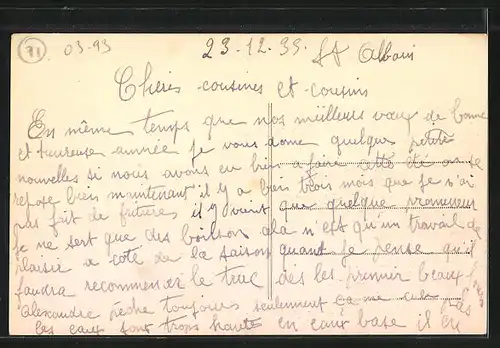 71 03-93 23-12-39. St Albain
Chéris cousines et cousins
En même temps que nos meilleurs vœux de bonne
et heureuse année je vous donne quelque petite
nouvelles si nous avons eu bien a faire cette été on se
repose bien maintenant il y a bien trois mois que je n'ai
pas fait de fritures il y vient que quelque promeneur
je ne sert que des boisson ala n est qu'un travail de
plaisir a coté de la saison quant je pense qu'il
faudra recommencer le truc dès les premier beaux jours
alexandre pèche toujours seulement ça ne pas
les eaux sont trops haute en eaux base il en